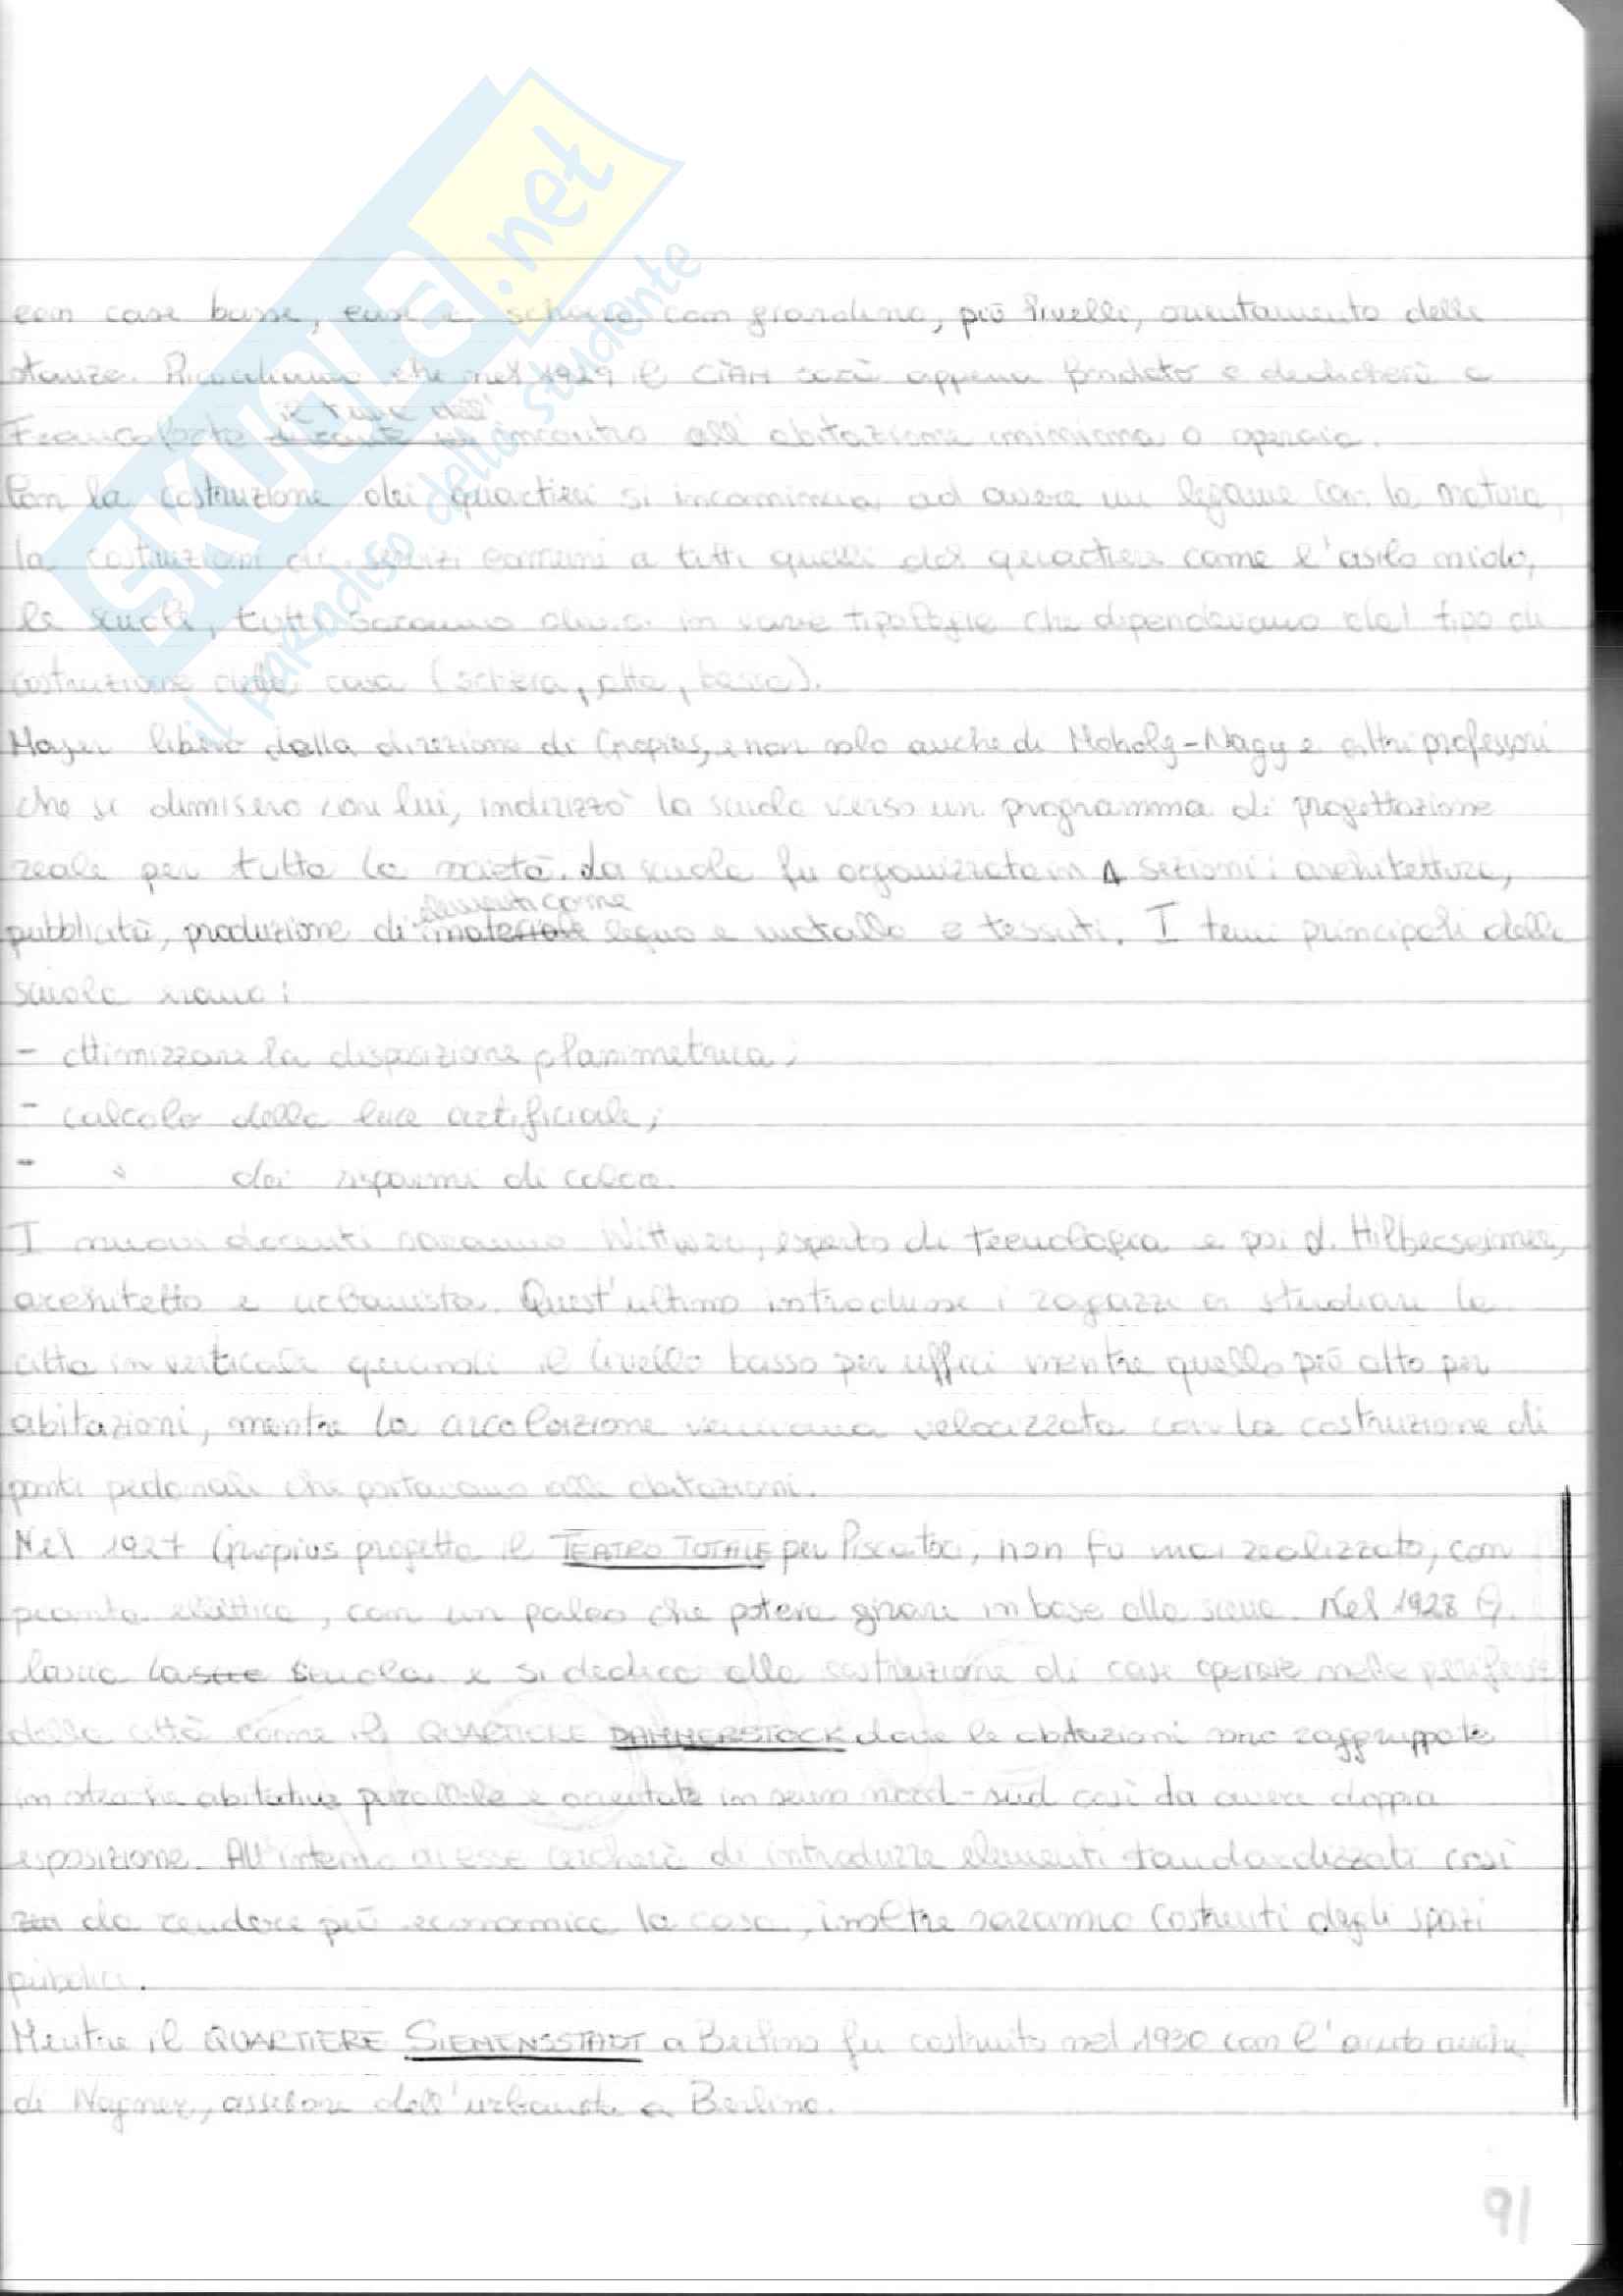 SKUOLA.net
il paradiso dello studente
con case basse, case a schiera con giardino, più livelli, orientamento delle
stanze. Ricordiamo che nel 1929 il CIAM sarà appena fondato e dedicherà a
Francoforte il tema dell' incontro all'abitazione minima o operaia.
Con la costruzione dei quartieri si incomincia ad avere un legame con la natura,
la costruzioni di servizi comuni a tutti quelli del quartiere come l'asilo nido,
le scuole, tutti saranno divisi in varie tipologie che dipendevano dal tipo di
costruzione della casa (schiera, alta, bassa).
Mayer libero dalla direzione di Gropius, e non solo anche di Moholy-Nagy e altri professori
che si dimisero con lui, indirizzò la scuola verso un programma di progettazione
reale per tutta la società. La scuola fu organizzata in 4 sezioni: architettura,
pubblicità, produzione di elementi come legno e metallo e tessuti. I temi principali della
scuola erano:
- ottimizzare la disposizione planimetrica;
- calcolo della luce artificiale;
- " dei risparmi di calore.
I nuovi docenti saranno Wittwer, esperto di tecnologia e poi L. Hilberseimer,
architetto e urbanista. Quest'ultimo introdusse i ragazzi a studiare la
città in verticale quindi il livello basso per uffici mentre quello più alto per
abitazioni, mentre la circolazione veniva velocizzata con la costruzione di
ponti pedonali che portavano alle abitazioni.
Nel 1927 Gropius progetta il TEATRO TOTALE per Piscator, non fu mai realizzato, con
pianta ellittica, con un palco che poteva girare in base alla scena. Nel 1928 G.
lascia la scuola e si dedica alla costruzione di case operaie nelle periferie
delle città come il QUARTIERE DAMMERSTOCK dove le abitazioni sono raggruppate
in stecche abitative parallele e orientate in senso nord-sud così da avere doppia
esposizione. All'interno di esse cercherà di introdurre elementi standardizzati così
da rendere più economica la casa, inoltre saranno costruiti degli spazi
pubblici.
Mentre il QUARTIERE SIEMENSSTADT a Berlino fu costruito nel 1930 con l'aiuto anche
di Wagner, assessore dell'urbanista a Berlino.
91